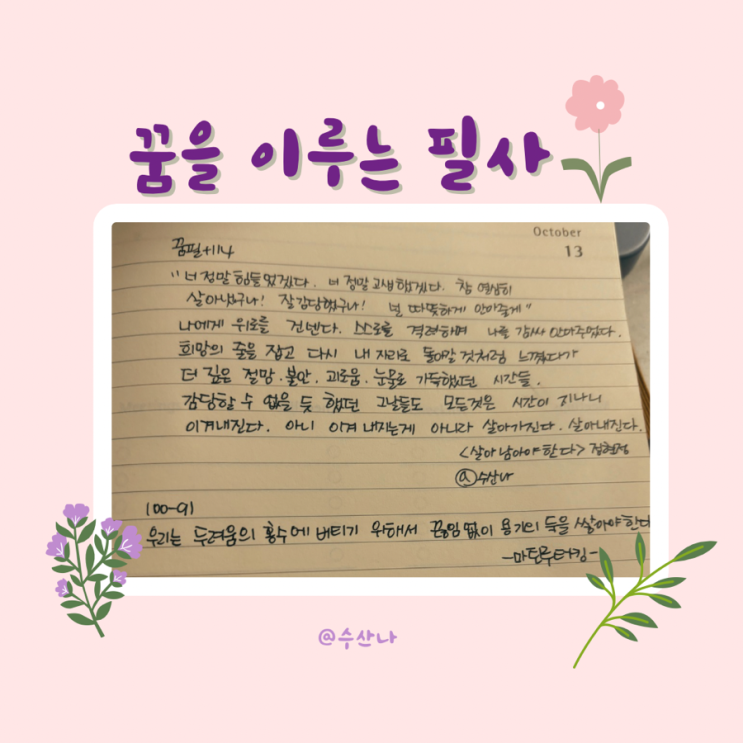 꿈을 이루는 필사
October
13
꿈필+114
"너 정말 힘들었겠다. 너 정말 고생했겠다. 참 열심히
살아냈구나! 잘 감당했구나! 널 따뜻하게 안아줄게"
나에게 위로를 건넨다. 스스로를 격려하며 나를 감싸 안아주었다.
희망의 줄을 잡고 다시 내 자리로 돌아갈 것처럼 느꼈다가
더 깊은 절망. 불안. 괴로움. 눈물로 가득했던 시간들.
감당할 수 없을 듯 했던 그날들도 모든것은 시간이 지나니
이겨내진다. 아니 이겨 내지는게 아니라 살아가진다. 살아내진다.
<살아 남아야 한다> 김현정
@수산나
100-91
우리는 두려움의 홍수에 버티기 위해서 끊임 없이 용기의 둑을 쌓아야한다
-마틴루터킹-
@수산나